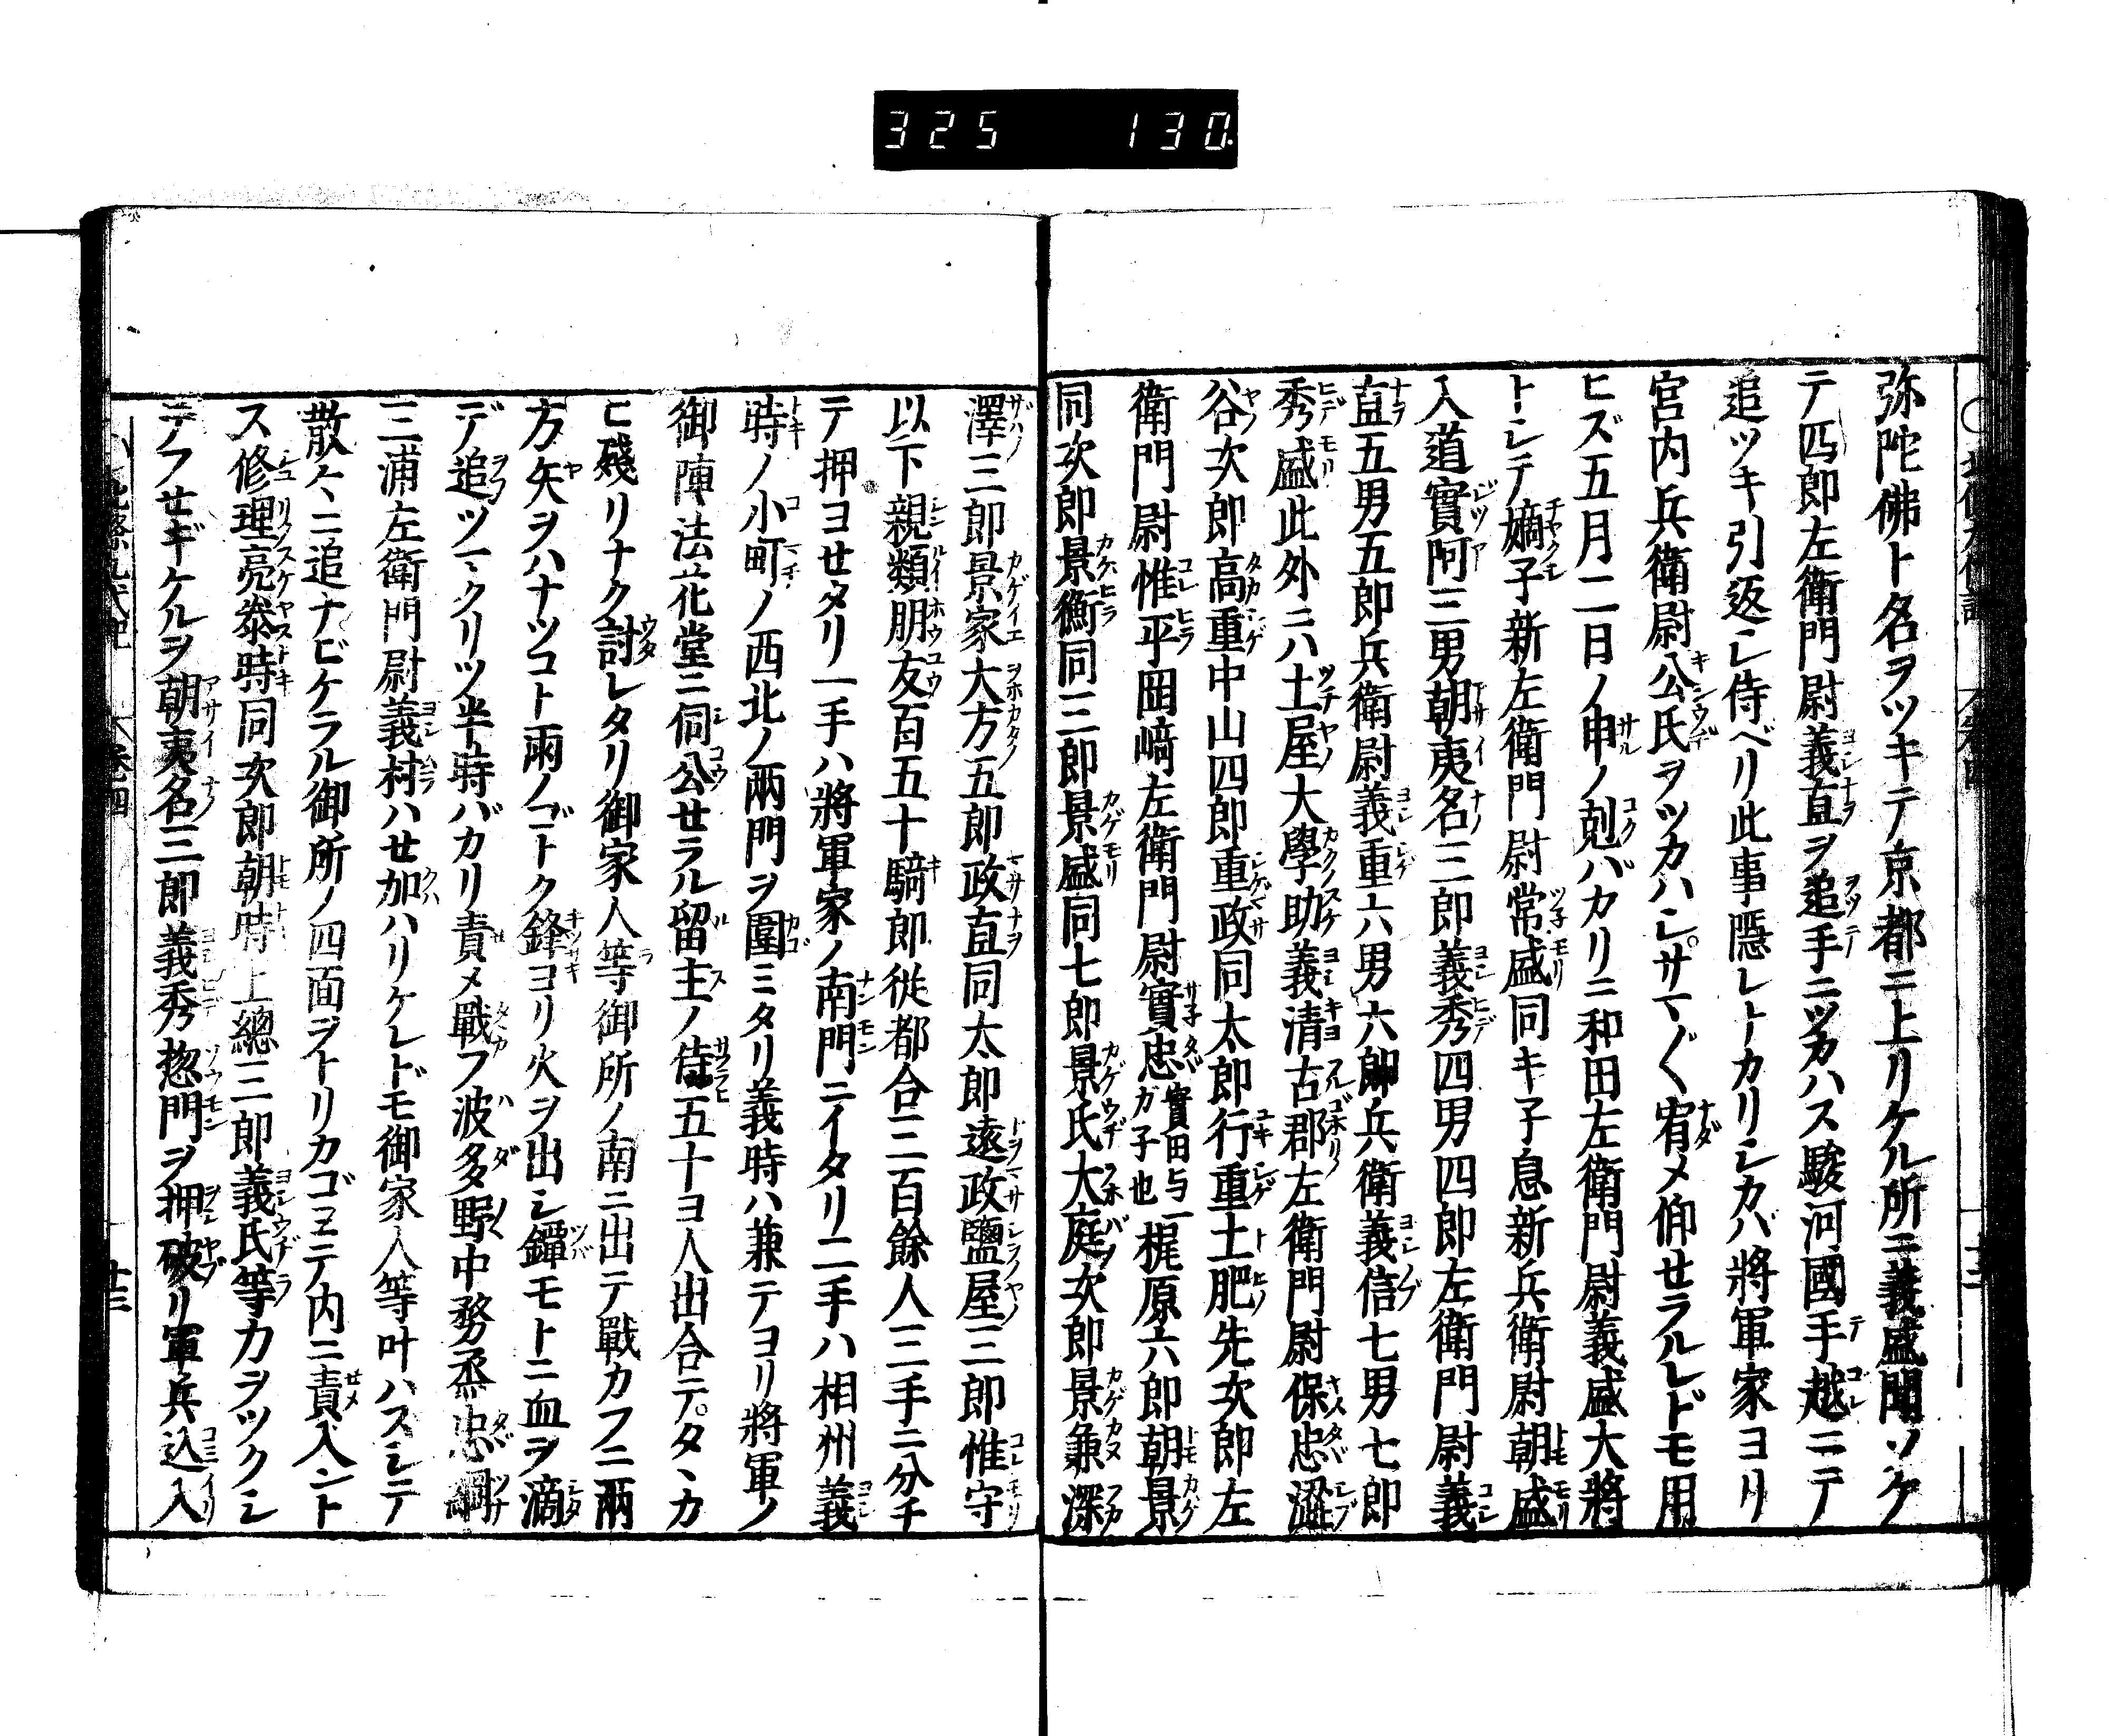 325 130
弥陀佛ト名ヲツキテ京都ニ上リケル所ニ義盛聞ツケ
テ四郎左衛門尉義直ヲ追手ニツカハス駿河國手越ニテ
追ツキ引返シ侍ベリ此事隠レトカリシカバ將軍家ヨリ
宮内兵衛尉公氏ヲツカハシサマ〴〵宥メ仰せラルレドモ用
ヒズ五月二日ノ申ノ剋バカリニ和田左衛門尉義盛大將
トシテ嫡子新左衛門尉常盛同キ子息新兵衛尉朝盛
入道實阿三男朝夷名三郎義秀四男四郎左衛門尉義
直五男五郎兵衛尉義重六男六郎兵衛義信七男七郎
秀盛此外ニハ土屋大學助義清古郡左衛門尉保忠澁
谷次郎高重中山四郎重政同太郎行重土肥先次郎左
衛門尉惟平岡﨑左衛門尉實忠實田与一カ子也梶原六郎朝景
同次郎景衡同三郎景盛同七郎景氏大庭次郎景兼深
澤三郎景家大方五郎政直同太郎遠政鹽屋三郎惟守
以下親類朋友百五十騎郎従都合三百餘人三手ニ分チ
テ押ヨせタリ一手ハ將軍家ノ南門ニイタリ二手ハ相州義
時ノ小町ノ西北ノ兩門ヲ圍ミタリ義時ハ兼テヨリ將軍ノ
御陣法花堂ニ伺公せラル留主ノ侍五十ヨ人出合テタヽカ
ヒ殘リナク討レタリ御家人等御所ノ南ニ出テ戰カフニ兩
方矢ヲハナツコト雨ノゴトク鋒ヨリ火ヲ出シ鐔モトニ血ヲ滴
デ追ツマクリツ半時バカリ責メ戰フ波多野中務丞忠綱
三浦左衛門尉義村ハせ加ハリケレドモ御家人等叶ハスシテ
散々ニ追ナビケラル御所ノ四面ヲトリカゴミテ内ニ責入ント
ス修理亮泰時同次郎朝時上總三郎義氏等力ヲツクシ
テフせギケルヲ朝夷名三郎義秀惣門ヲ押破リ軍兵込入
卷四
廿三